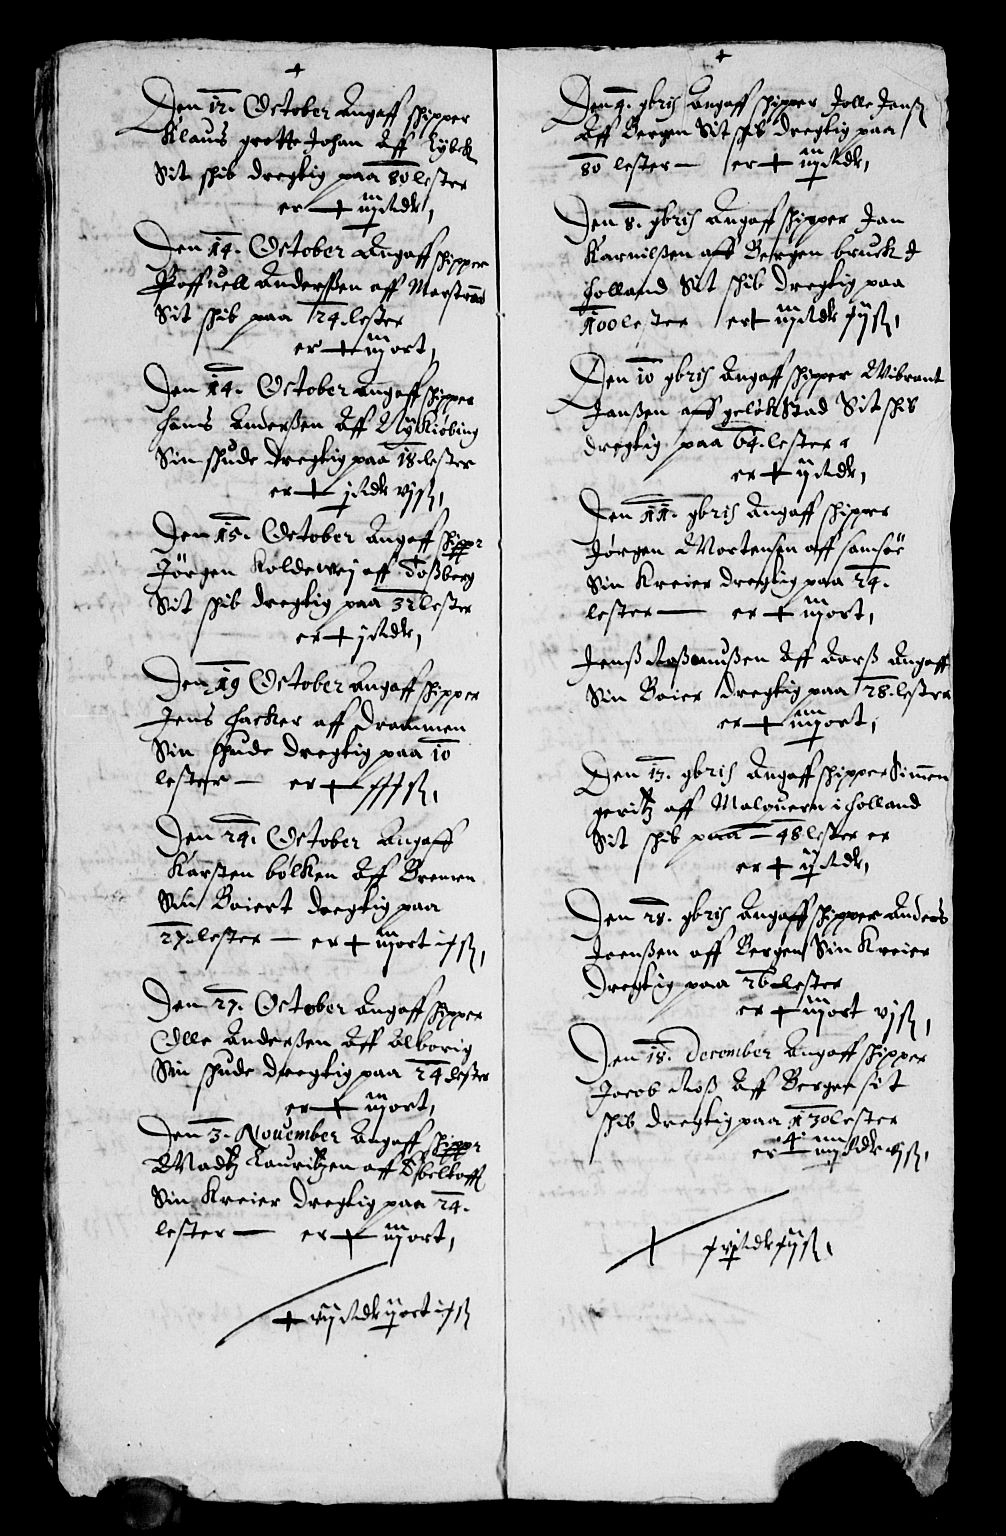 Den 12. October Angaff skipper
Klaus grotte Johan Aff Lybek
Sit skib dregtig paa 80 lester
er + iij Rdr,
Den 14. October Angaff skipper
Poffuell Anderßen aff Marstrand
Sit skib paa 24. lester
er + iij ort,
Den 14. October Angaff skipper
Hans Anderßen Aff Nykiöbing
Sin skude dregtig paa 18. lester
er + j Rdr vj ß,
Den 15. October Angaff skipper
Jörgen Koldewej aff Toßberg
Sit skib dregtig paa 32 lester
er + j Rdr,
Den 19 October Angaff skipper
Jens Hacker aff Drammen
Sin skude dregtig paa 10
lester — er + ß,
Den 24. October Angaff
Karsten bölken Aff Bremen
Sin Boiert dregtig paa
27. lester — er + iij ort ß,
Den 27. October Angaff skipper
Olle Anderßen Aff Alborig
Sin skude dregtig paa 24 lester
er + iij ort,
Den 3. November Angaff skipper
Madtz Lauritzen aff Ebeltofft
Sin Kreier dregtig paa 24.
lester — er + iij ort,
+ vij Rdr ij ort ß
Den 4. 9bris Angaff skipper Jolle Jenß
Aff Bergen Sit skib dregtig paa
80 lester — er + iij Rdr,
Den 8. 9bris Angaff skipper Jan
Karnilßen aff Bergen bruck I
Holland Sit skib dregtig paa
100 lester er + iij Rdr ß,
Den 10 9bris Angaff skipper Wibrant
Janßen aff gelökstad Sit skib
dregtig paa 64. lester
er + ij Rdr,
Den 11. 9bris Angaff skipper
Jörgen Mortensen aff samsöe
Sin Kreier dregtig paa 24.
lester — er + iij ort,
Jenß Raßmußen Aff Aarß Angaff
Sin Boier dregtig paa 28. lester
er + iij ort,
Den 13. 9bris Angaff skipper Simen
geritz aff i Holland
Sit skib paa — 48 lester er
er + ij Rdr,
Den 28. 9bris Angaff skipper Anders
Jenßen aff Bergen Sin Kreier
Dregtig paa 26 lester
er + iij ort vj ß,
Den 18. December Angaff skipper
Jacob Roß Aff Bergen sit
skib dregtig paa 130 lester
er 4 iiij Rdr vj ß,
+ Rdr ß,